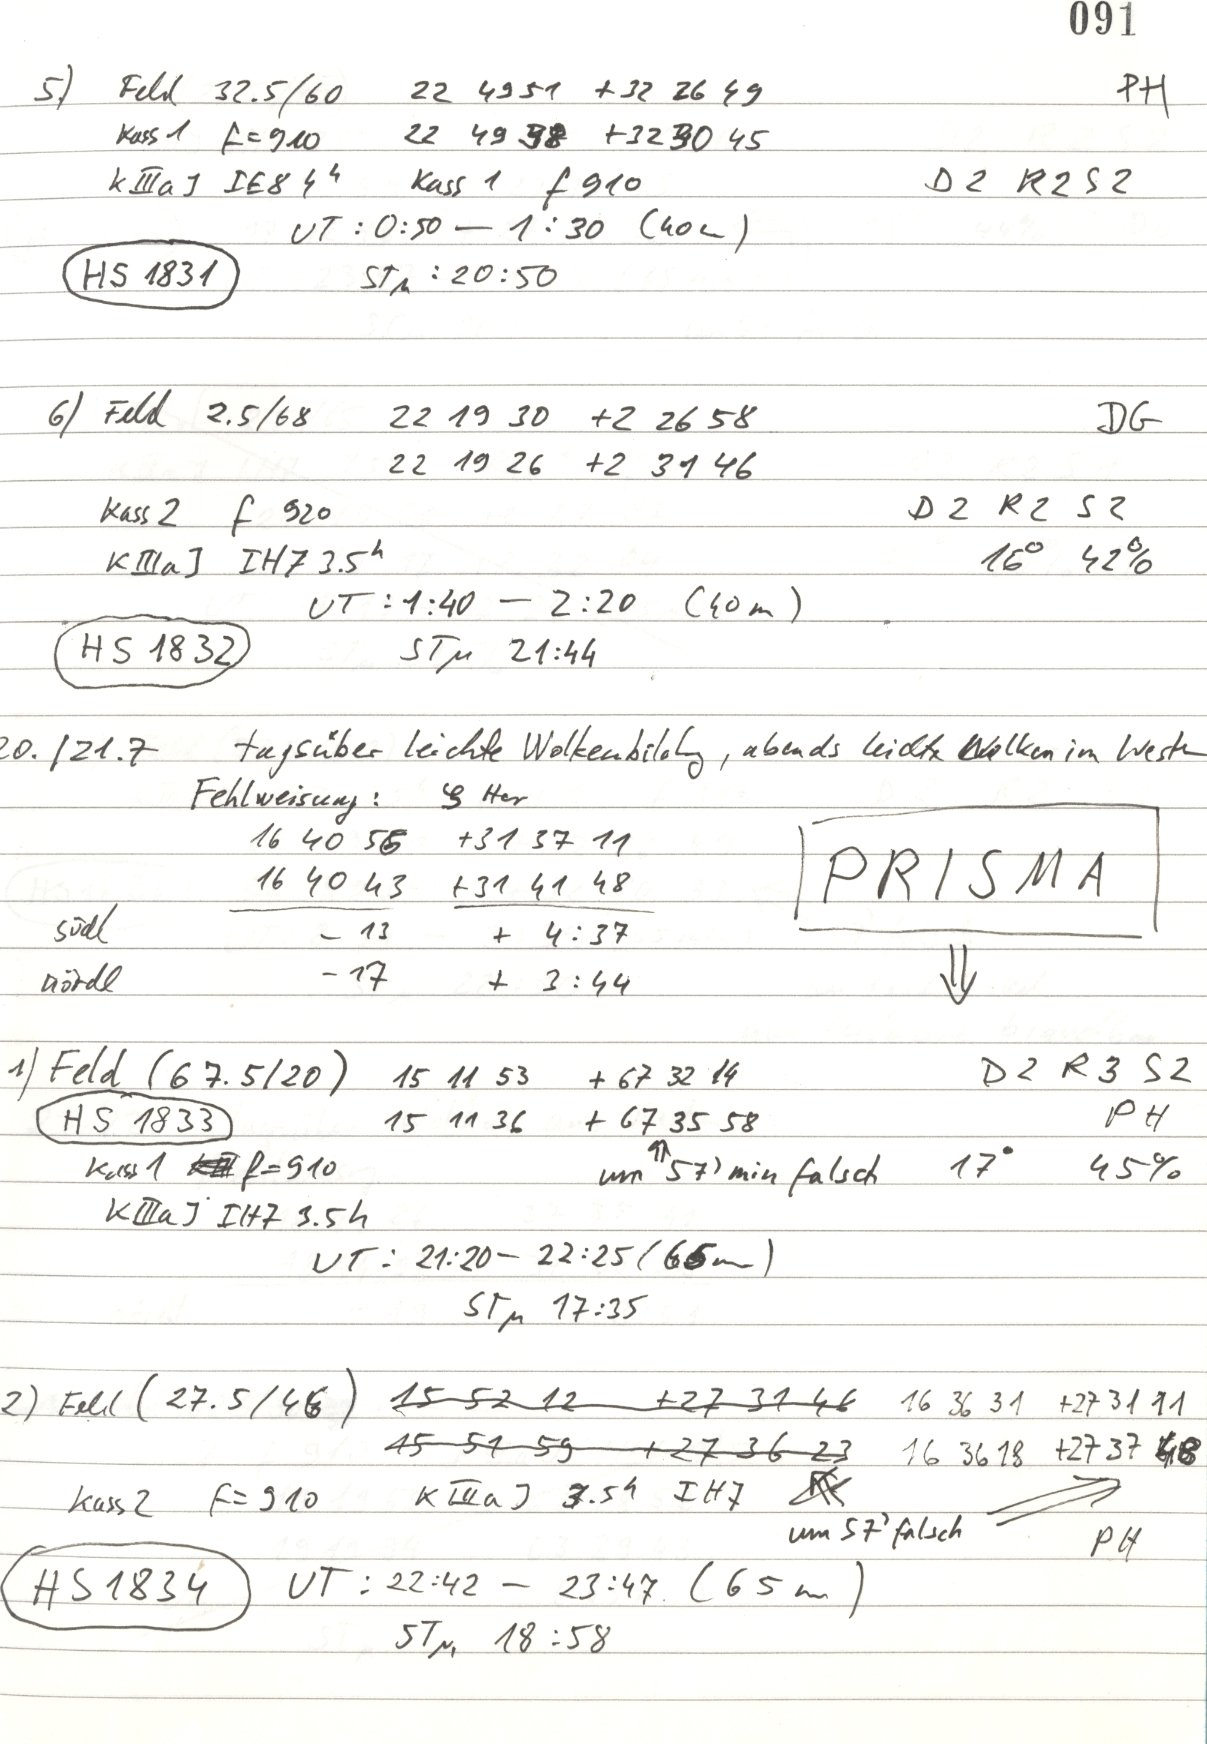 091
5) Feld 32.5/60 22 49 51 +32 26 49 PH
Kass 1 f=910 22 49 38 +32 30 45
KIIIaJ IE8 4h Kass 1 f 910 D2 R2 S2
UT : 0:50 — 1:30 (40m)
HS 1831 STμ : 20:50
6) Feld 2.5/68 22 19 30 +2 26 58 DG
22 19 26 +2 31 46
Kass 2 f 920 D2 R2 S2
KIIIaJ IH7 3.5h 16° 42%
UT : 1:40 — 2:20 (40m)
HS 1832 STμ 21:44
20./21.7 tagsüber leichte Wolkenbildg, abends leichte Wolken im Westen
Fehlweisung: ζ Her
16 40 56 +31 37 11
16 40 43 +31 41 48 PRISMA
südl - 13 + 4:37
nördl - 17 + 3:44 ⇓
1) Feld (67.5/20) 15 11 53 +67 32 14 D2 R3 S2
HS 1833 15 11 36 +67 35 58 PH
Kass 1 f=910 um 57' min falsch 17° 45%
KIIIaJ IH7 3.5h
UT : 21:20 — 22:25 (65m)
STμ 17:35
2) Feld (27.5/46) 15 52 12 +27 31 46 16 36 31 +27 31 11
15 51 59 +27 36 23 16 36 18 +27 37 48
Kass 2 f=910 KIIIaJ 3.5h IH7
um 57' falsch PH
HS 1834 UT : 22:42 — 23:47 (65m)
STμ 18:58